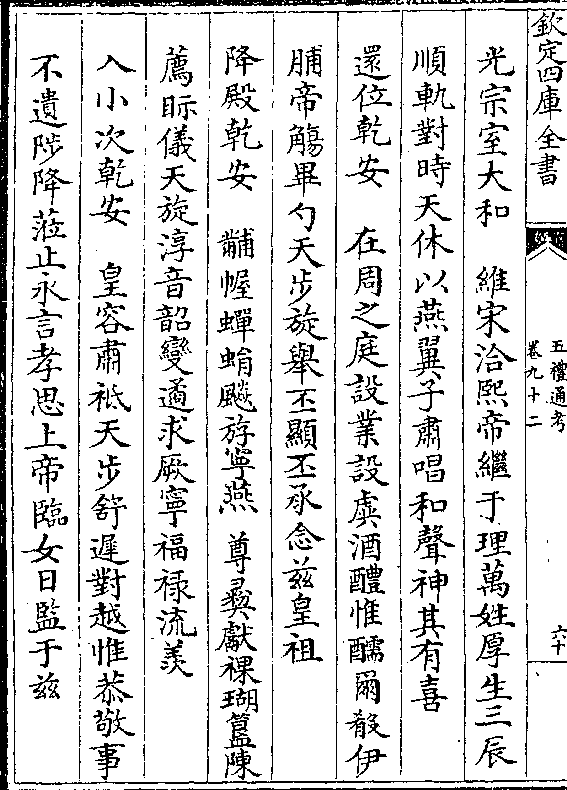 欽定四庫全書
五禮通考
卷九十二
六十
光宗室大和　維宋洽熙帝繼于理萬姓厚生三辰
順軌對時天休以燕翼子肅唱和聲神其有喜
還位乾安　在周之庭設業設虡酒醴惟醹爾殽伊
脯帝觴畢勺天步旋舉丕顯丕承念兹皇祖
降殿乾安　黼幄蟬蜎飈斿寧燕尊彞獻祼瑚簋陳
薦眎儀天旋淳音韶變遹求厥寧福禄流羡
入小次乾安　皇容肅祗天步舒遲對越惟恭敬事
不遺陟降蒞止永言孝思上帝臨女日監于兹